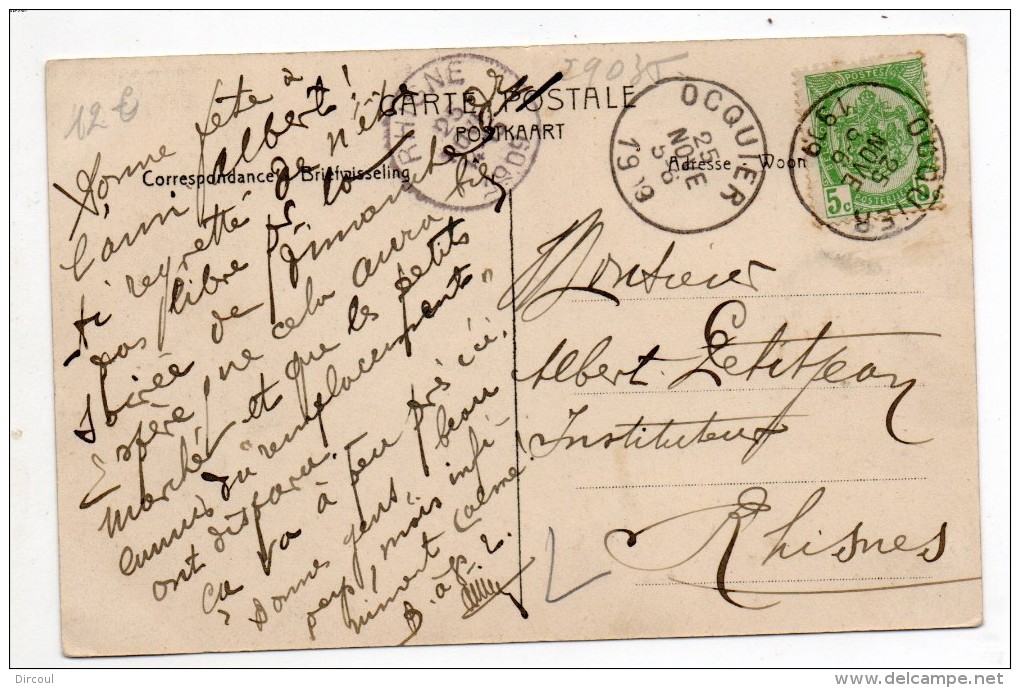 12 €
29035
CARTE POSTALE
POSTKAART
Correspondance Briefwisseling
Adresse Woon
RHISNE
25
1909
OCQUIER
25
NOVE
5-6
1909
OCQUIER
25
NOVE
5-6
1909
POSTES
5c
POSTERIJEN
Bonne fête à
l'ami Albert!
Ai regretté de n'être
pas libre p. la
soirée de dimanche
Espère, que cela aura
marché et que les petits
ennuis du "remplacement"
ont disparu.
Ça va à peu près ici.
Bonnes gens, beau
pays, mais infi-
niment calme!
B. à
Monsieur
Albert Petitjean
Instituteur
Rhisnes
Dircoul
delcampe.net